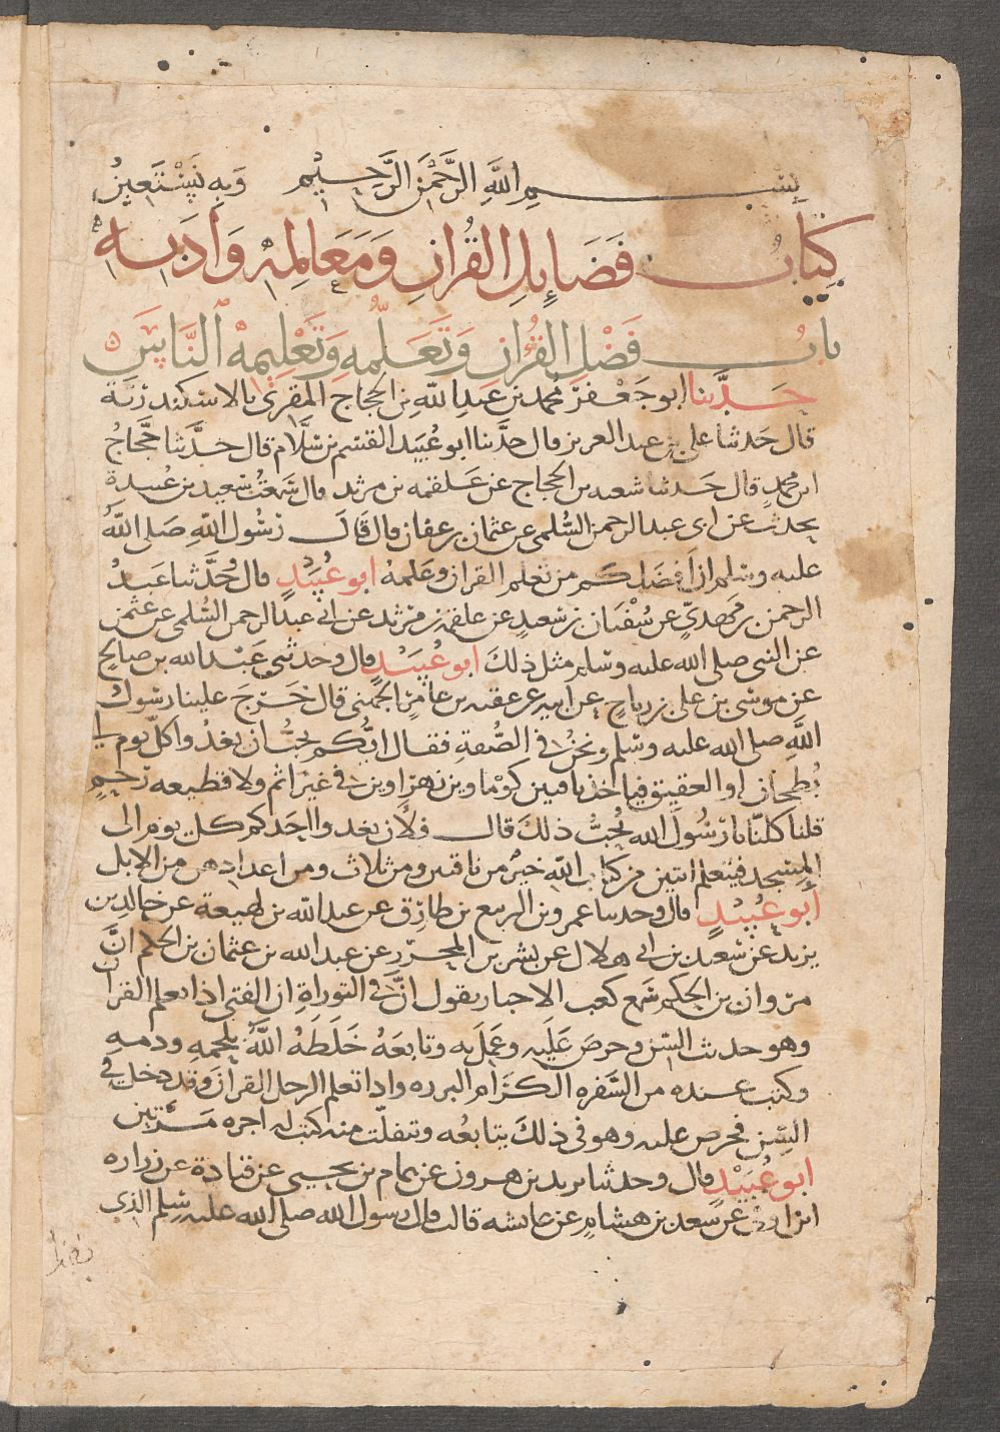 بسم الله الرحمن الرحيم وبه نستعين
كتاب فضايل القران ومعالمه وادبه
باب فضل القران وتعلمه وتعليمه الناس
حدثنا ابو جعفر محمد بن عبد الله بن الحجاج المقرئ بالاسكندرية
قال حدثنا علي بن عبد العزيز قال حدثنا ابو عبيد القسم بن سلام قال حدثنا حجاج
ابن محمد قال حدثنا شعبه بن الحجاج عن علقمه بن مرثد قال سمعت سعيد بن عبيدة
يحدث عن ابي عبد الرحمن السلمي عن عثمان بن عفان قال قال رسول الله صلى الله
عليه وسلم ان افضلكم من تعلم القران وعلمه ابو عبيد قال وحدثنا عبد
الرحمن بن مهدي عن سفيان بن سعيد عن علقمه بن مرثد عن ابي عبد الرحمن السلمي عن عثمن
عن النبي صلى الله عليه وسلم مثل ذلك ابو عبيد قال وحدثني عبد الله بن صالح
عن موسى بن علي بن رباح عن ابيه عن عقبه بن عامر الجهني قال خرج علينا رسول
الله صلى الله عليه وسلم ونحن في الصفة فقال ايكم يحب ان يغدوا كل يوم الي
بطحان او العقيق فياخذ ناقتين كوماوين زهراوين في غير اثم ولا قطيعه رحم
قلنا كلنا يا رسول الله يحب ذلك قال فلأن يغدوا احدكم كل يوم الى
المسجد فيتعلم ايتين من كتاب الله خير من ناقتين ومن ثلاث ومن اعدادهن من الابل
ابو عبيد قال وحدثنا عمرو بن الربيع بن طارق عن عبد الله بن لهيعة عن خالد بن
يزيد عن سعيد بن ابي هلال عن بشر بن المحرر عن عبد الله بن عثمان بن الحكم ان
مروان بن الحكم سمع كعب الاحبار يقول ان في التوراة ان الفتى اذا تعلم القران
وهو حديث السن وحرص عليه وعمل به وتابعه خلطه الله بلحمه ودمه
وكتب عنده من السفره الكرام البرره واذا تعلم الرجل القران وقد دخل في
السن فحرص عليه وهو في ذلك يتابعه وتفلت منه كتب له اجره مرتين
ابو عبيد قال وحدثنا يزيد بن هرون عن همام بن يحيى عن قتادة عن زراره
ابن اوفى عن سعد بن هشام عن عايشه قالت قال رسول الله صلى الله عليه وسلم الذي